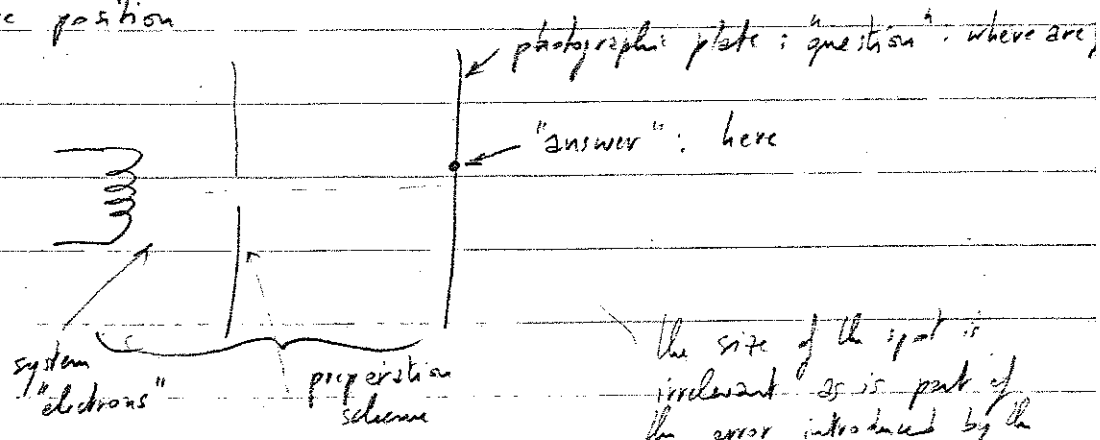 position
photographic plate : "question" : where are
"answer" : here
system
"electrons"
preperation
scheme
the size of the spot is
irrelevant as is part of
the error introduced by the